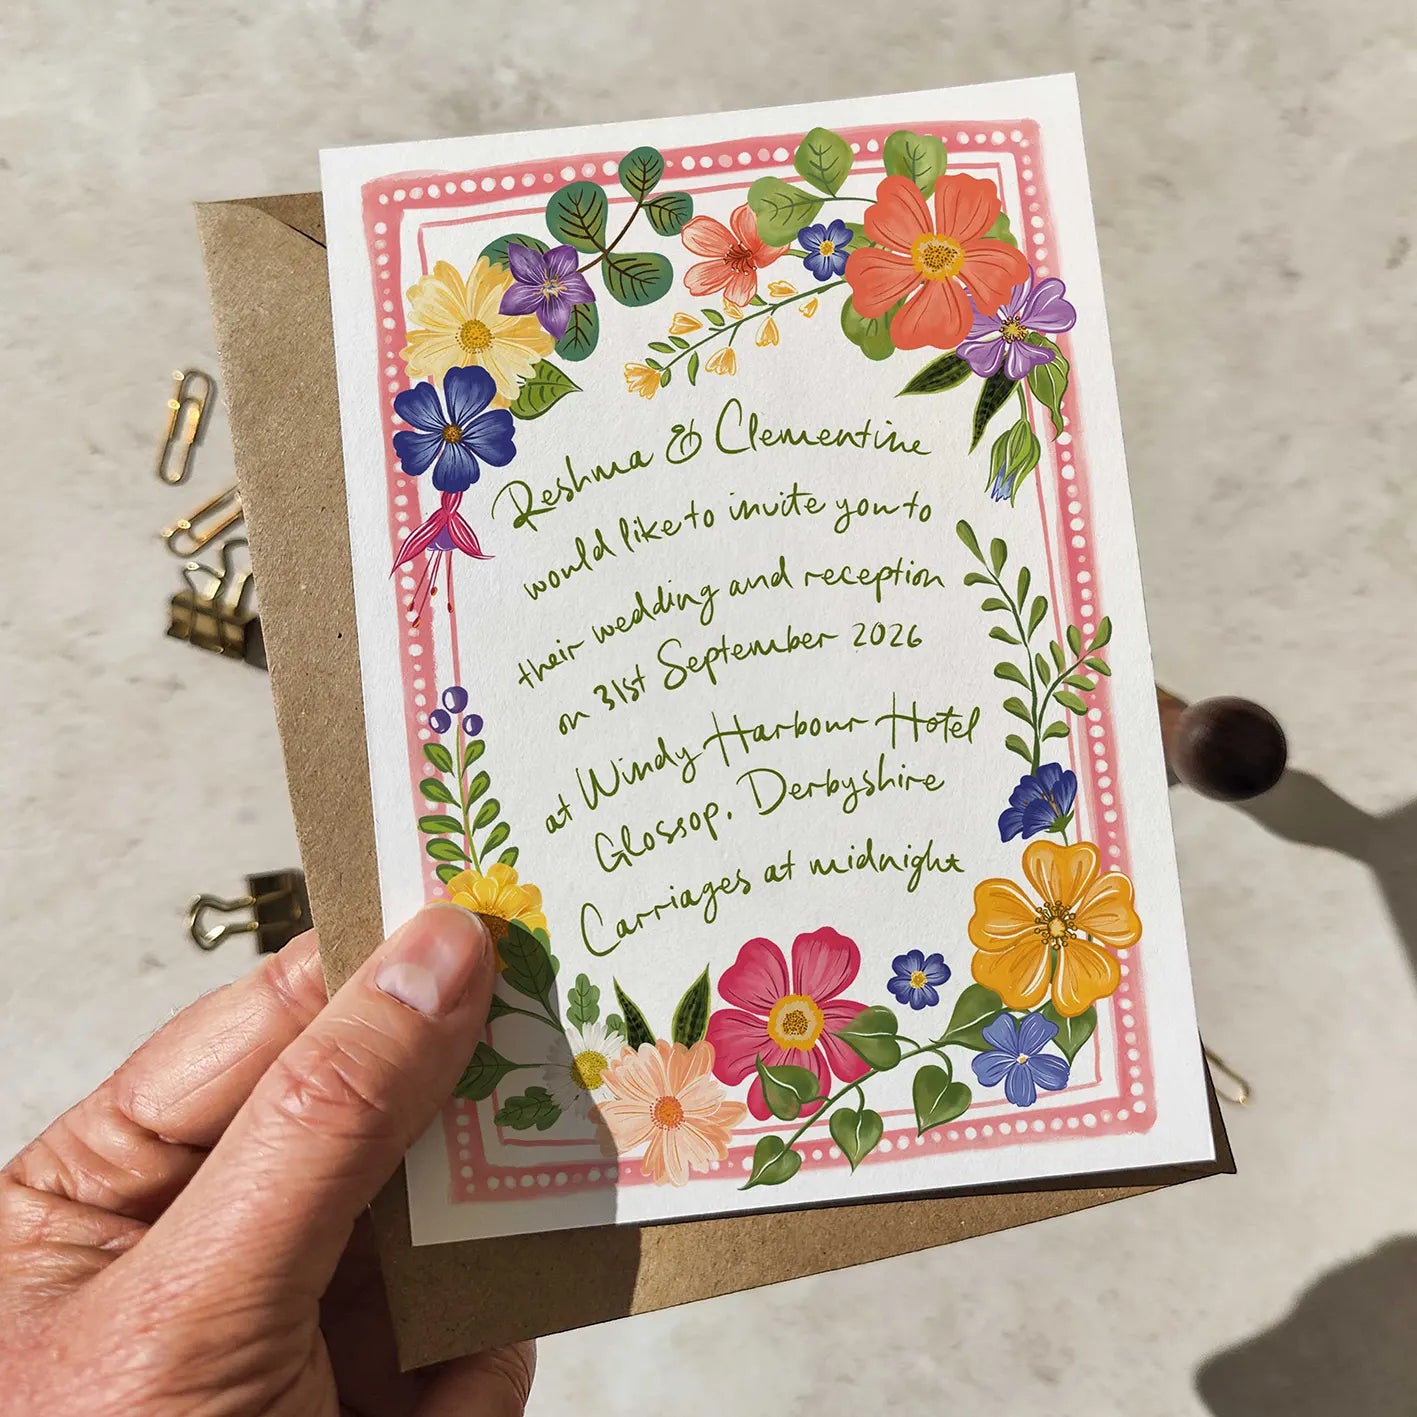 Reshma & Clementine
would like to invite you to
their wedding and reception
on 31st September 2026
at Windy Harbour Hotel
Glossop, Derbyshire
Carriages at midnight